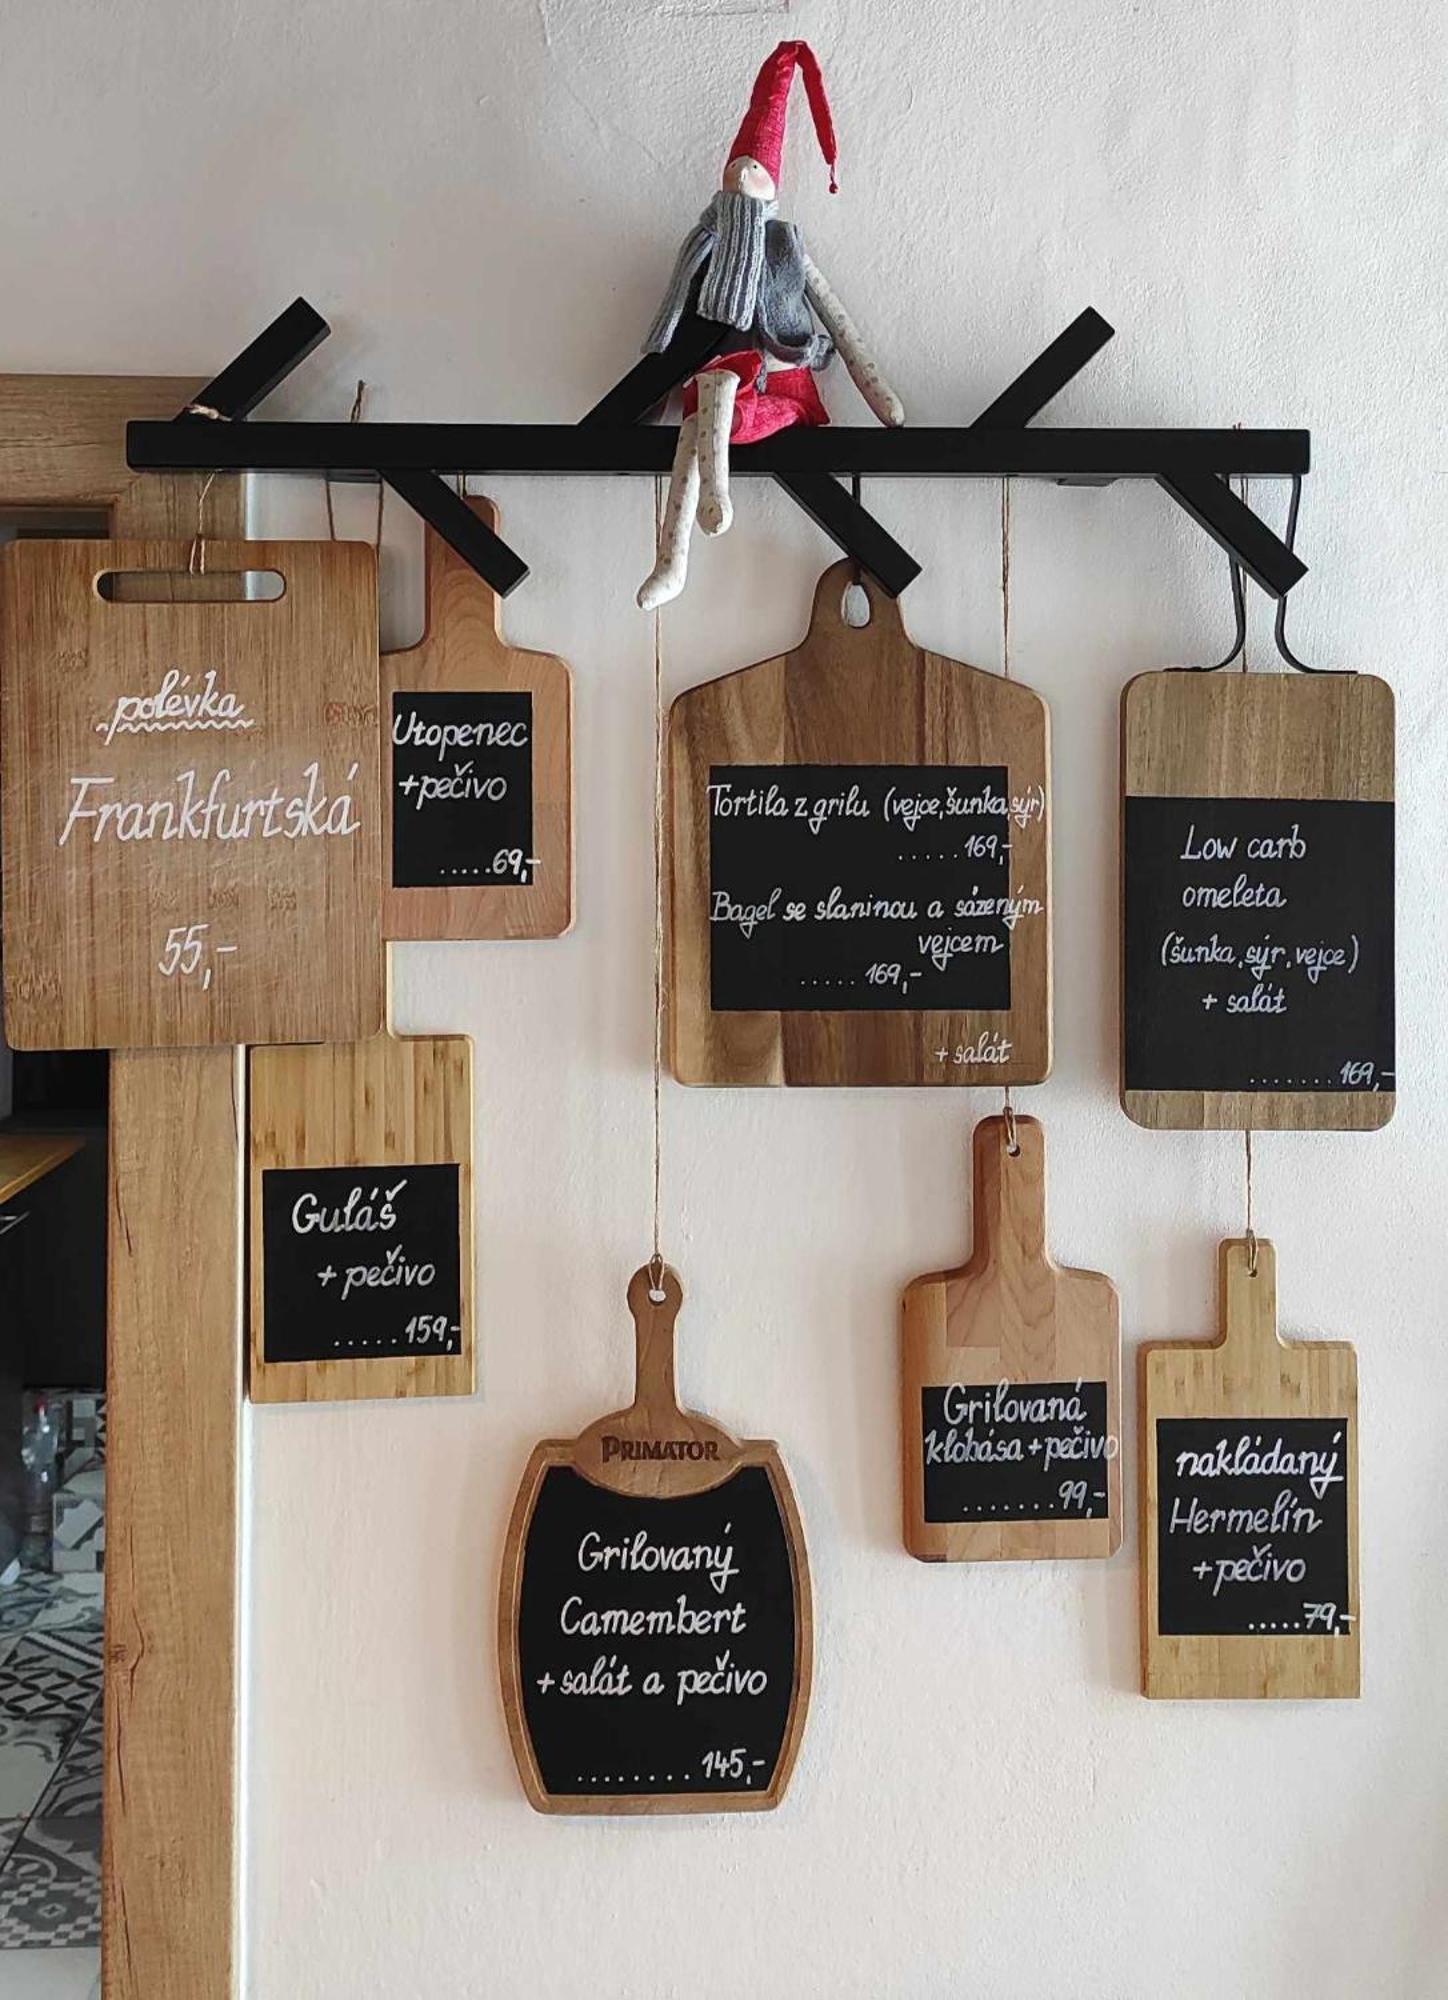 polévka
Frankfurtská
55,-
Utopenec
+pečivo
.....69,-
Guláš
+ pečivo
.....159,-
Tortila z grilu (vejce,šunka,sýr)
.....169,-
Bagel se slaninou a sázeným
vejcem
.....169,-
+ salát
Low carb
omeleta
(šunka,sýr,vejce)
+ salát
.......169,-
PRIMATOR
Grilovaný
Camembert
+ salát a pečivo
........145,-
Grilovaná
klobása + pečivo
.......99,-
nakládaný
Hermelín
+pečivo
.....79,-